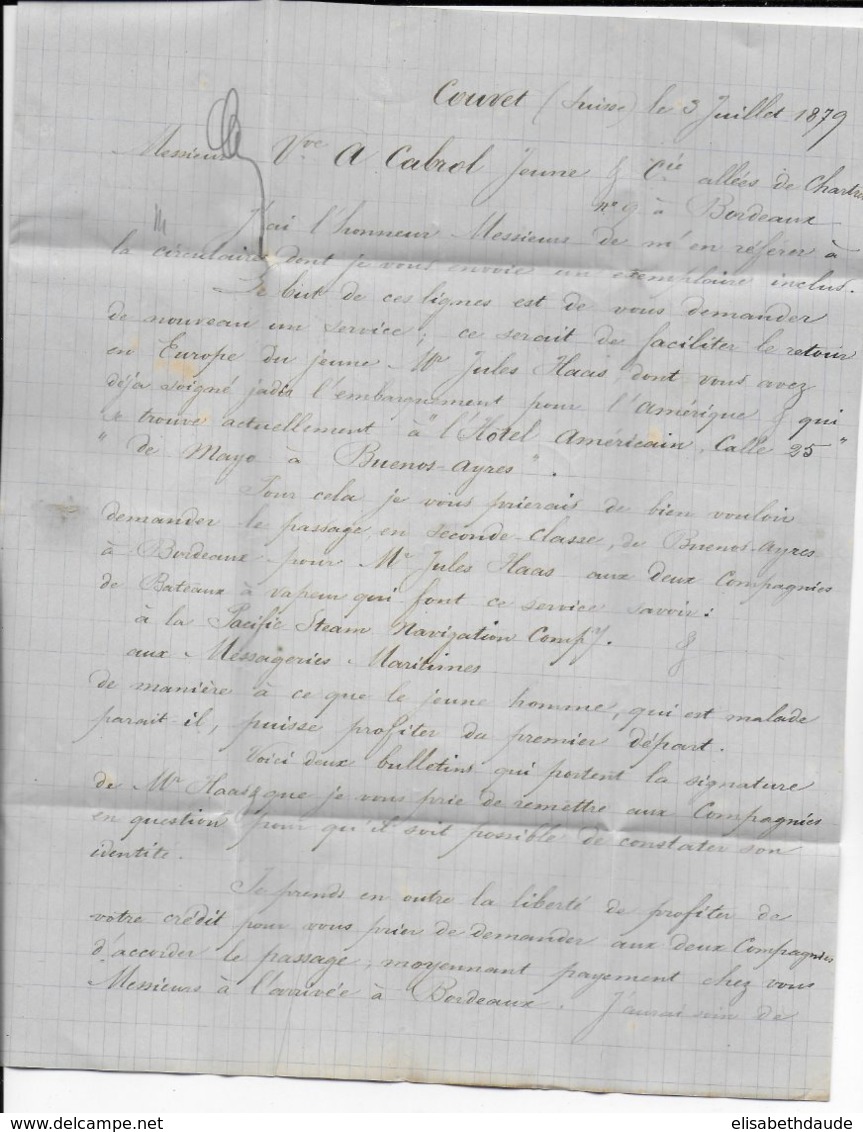 Couvet (Suisse) le 3 Juillet 1879
Messieurs Vve A Cabrol Jeune & Cie allées de Chartres
n° 9 à Bordeaux
J'ai l'honneur Messieurs de m'en référer à
la circulaire dont je vous envoie un exemplaire inclus.
Le but de ces lignes est de vous demander
de nouveau un service; ce serait de faciliter le retour
en Europe du jeune Mr Jules Haas dont vous avez
déjà soigné jadis l'embarquement pour l'Amérique & qui
se trouve actuellement à "l'Hôtel Américain, Calle 25"
"de Mayo à Buenos-Ayres".
Pour cela je vous prierais de bien vouloir
demander le passage en seconde classe, de Buenos-Ayres
à Bordeaux pour Mr Jules Haas aux deux Compagnies
de Bateaux à vapeur qui font ce service savoir:
à la Pacific Steam Navigation Compy. &
aux Messageries Maritimes
de manière à ce que le jeune homme, qui est malade
parait-il, puisse profiter du premier départ.
Voici deux bulletins qui portent la signature
de Mr Haas & que je vous prie de remettre aux Compagnies
en question pour qu'il soit possible de constater son
identité.
Je prends en outre la liberté de profiter de
votre crédit pour vous prier de demander aux deux Compagnies
d'accorder le passage, moyennant payement chez vous
Messieurs à l'arrivée à Bordeaux. J'aurai soin de
elisabethdaude